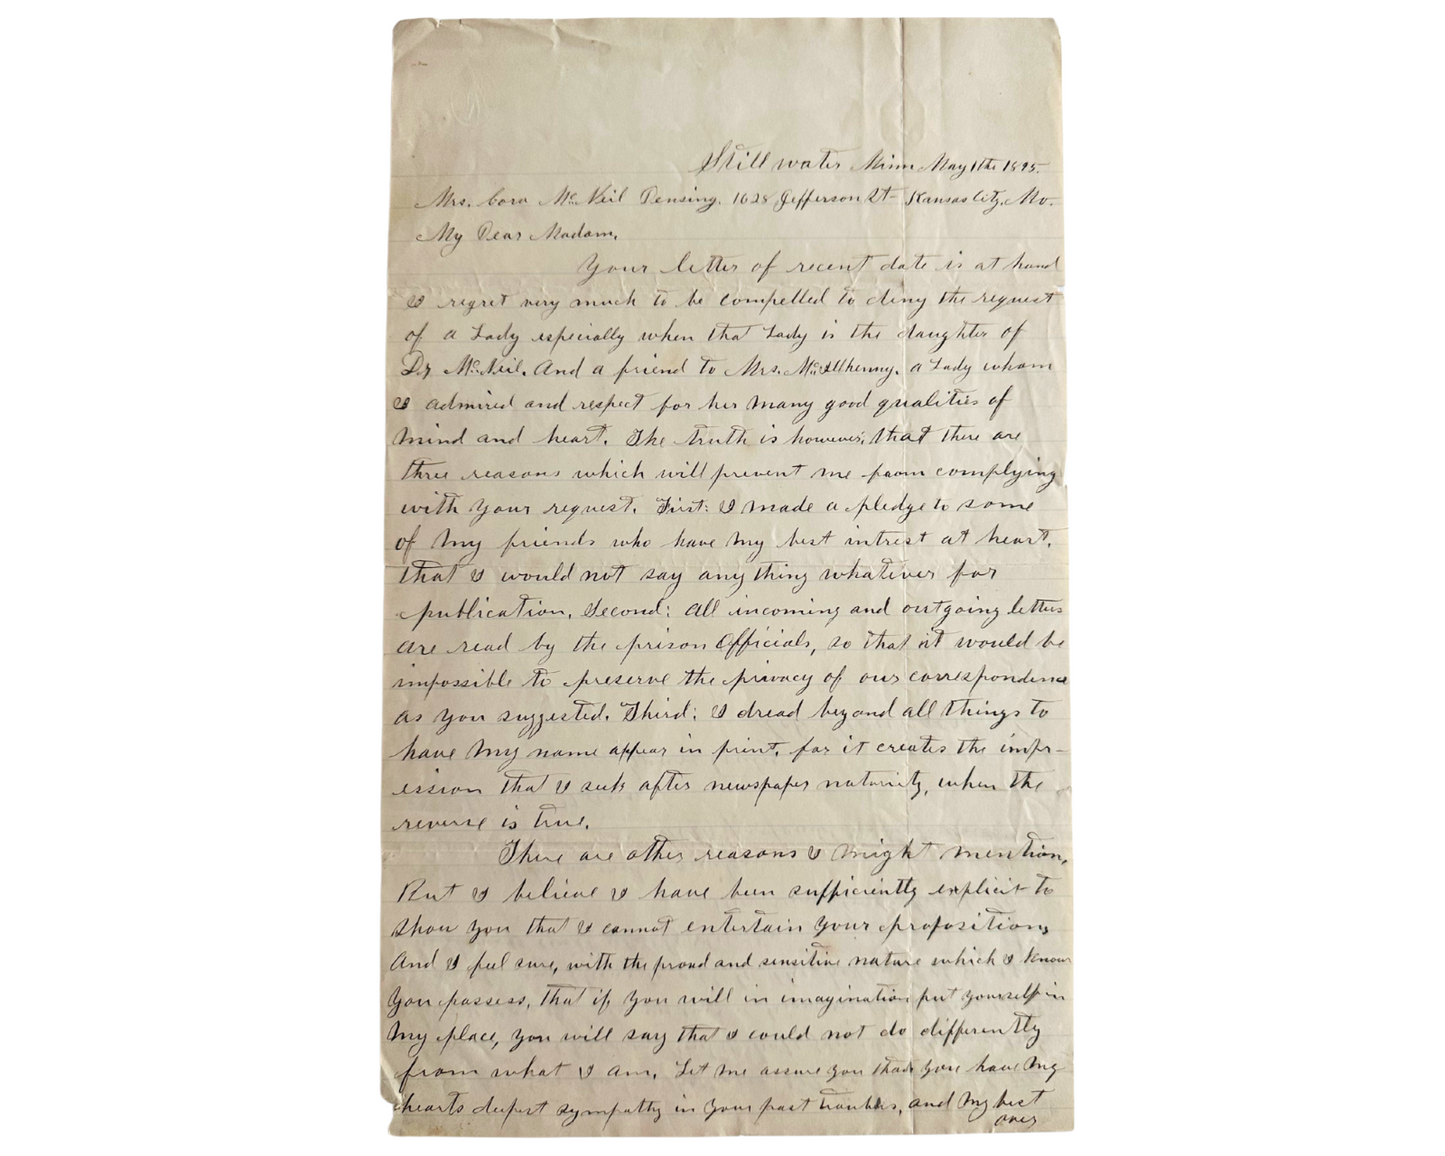 Still water Minn May 1the 1895.
Mrs. Cora McNeil Deming. 1628 Jefferson St- Kansas City, Mo.
My Dear Madam,
Your letter of recent date is at hand
I regret very much to be compelled to deny the request
of a Lady especially when that Lady is the daughter of
Dr McNeil. And a friend to Mrs. a Lady whom
I admired and respect for her many good qualities of
mind and heart. The truth is however, that there are
three reasons which will prevent me from complying
with your request. First: I made a pledge to some
of my friends who have my best intrest at heart.
that I would not say any thing whatever for
publication. Second: all incoming and outgoing letters
are read by the prison Officials, so that it would be
impossible to preserve the privacy of our correspondence
as you suggested. Third: I dread beyond all things to
have my name appear in print. for it creates the impr-
ession that I seek after newspaper notority, when the
reverse is true.
There are other reasons I might mention,
But I believe I have been sufficiently explicit to
show you that I cannot entertain your proposition,
And I feel sure, with the proud and sensitive nature which I know
you possess, that if you will in imagination put yourself in
my place, you will say that I could not do differently
from what I am. Let me assure you that you have my
hearts deepest sympathy in your past troubles, and my best
over